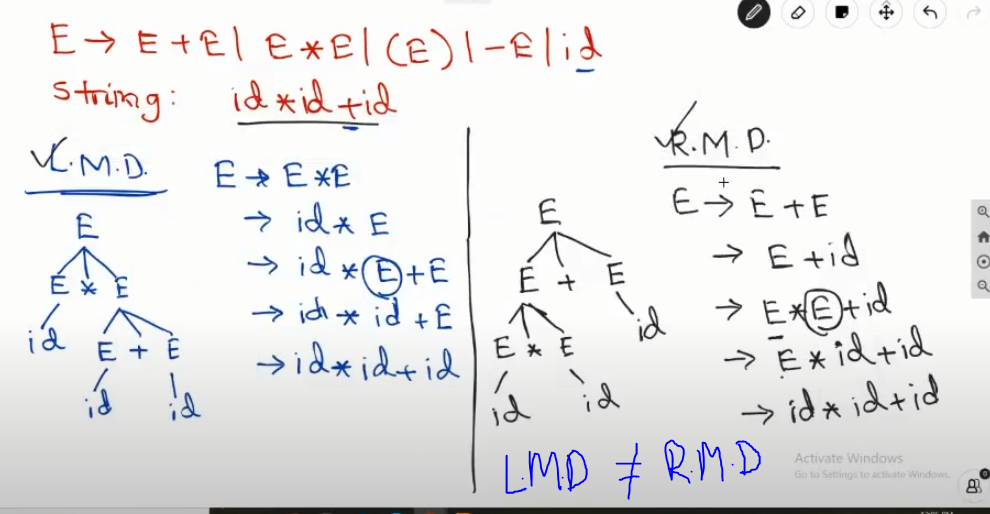 E → E + E | E * E | (E) | - E | id
string: id * id + id
L.M.D.
E → E * E
→ id * E
→ id * E + E
→ id * id + E
→ id * id + id
E
E * E
id E + E
id id
R.M.D.
E → E + E
→ E + id
→ E * E + id
→ E * id + id
→ id * id + id
E
E + E
E * E id
id id
L.M.D ≠ R.M.D
Activate Windows
Go to Settings to activate Windows.